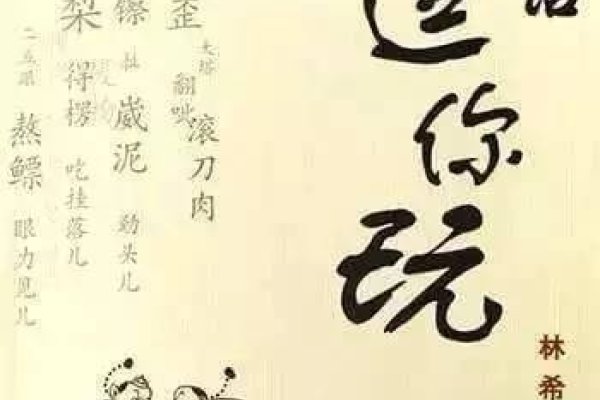 你玩
林希
歪
翻呲
滚刀肉
崴泥
劲头儿
梨
得楞
吃挂落儿
二五眼
熬鳔
眼力见儿